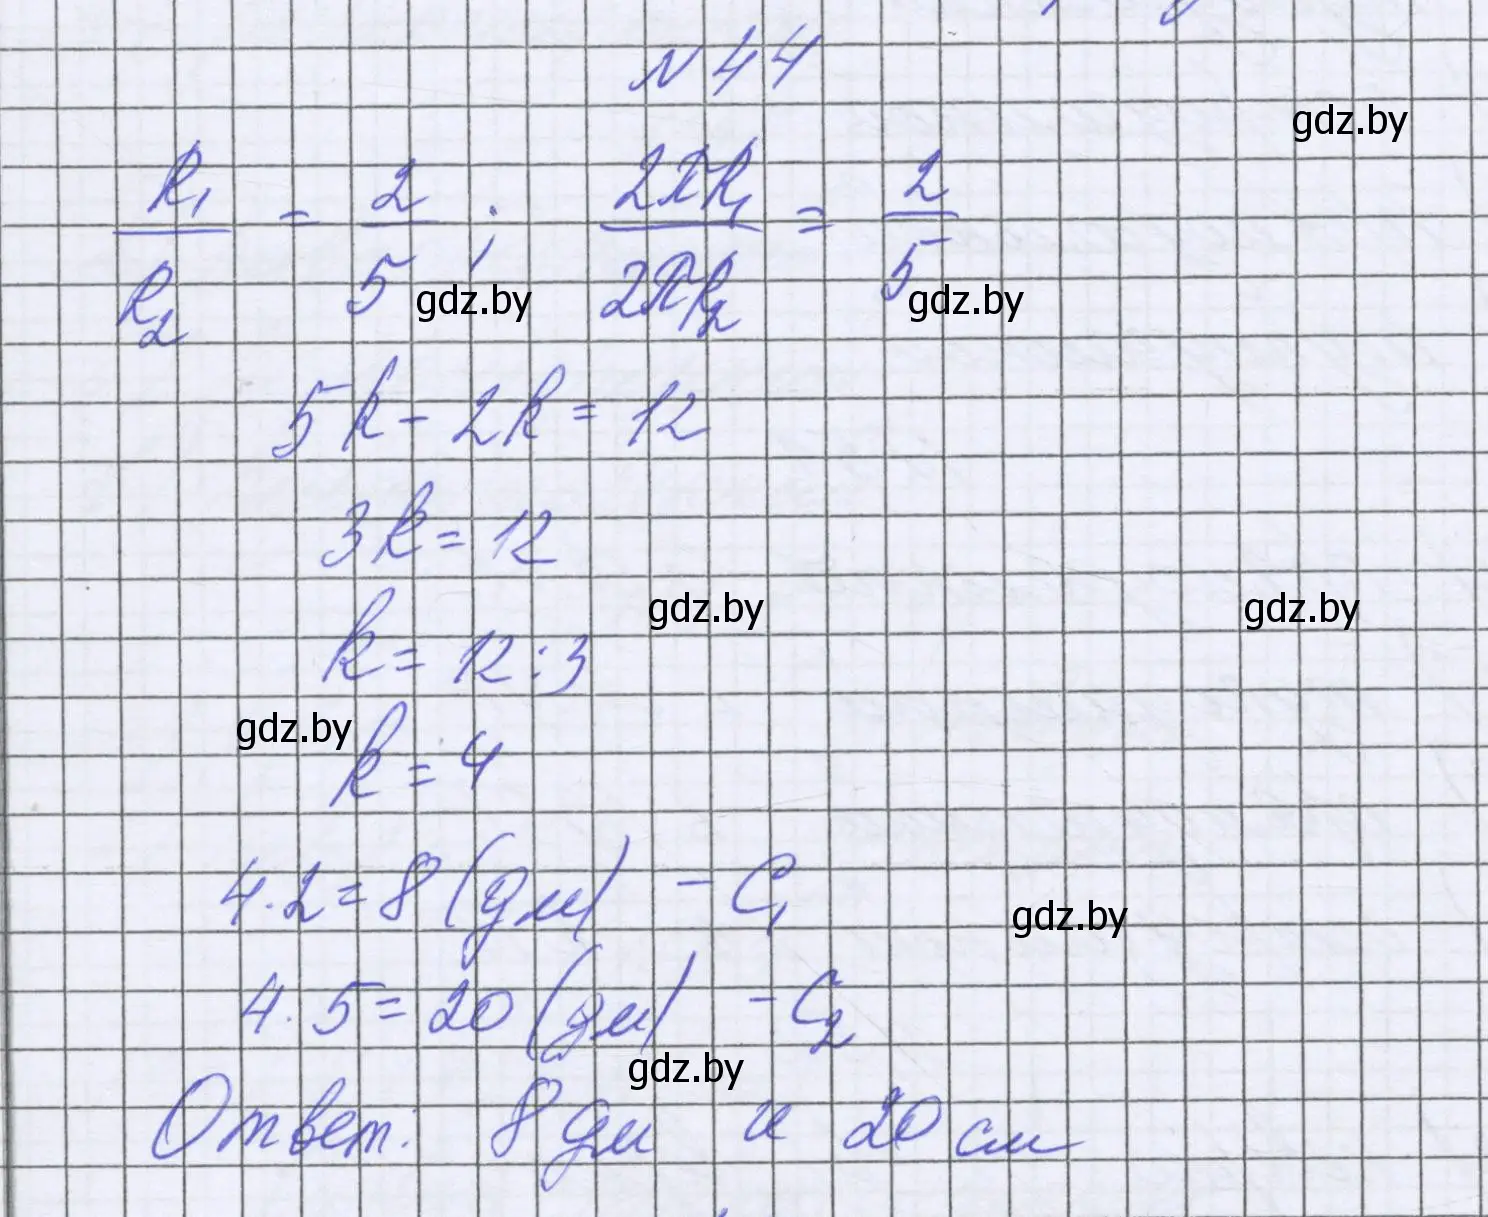 N 44
gdz.by
R₁/R₂ = 2/5 ; 2πR₁/2πR₂ = 2/5
gdz.by gdz.by
5k - 2k = 12
3k = 12
k = 12 : 3
gdz.by gdz.by
gdz.by
k = 4
4 · 2 = 8 (дм) - C₁
gdz.by
4 · 5 = 20 (дм) - C₂
gdz.by
Ответ: 8 дм и 20 см